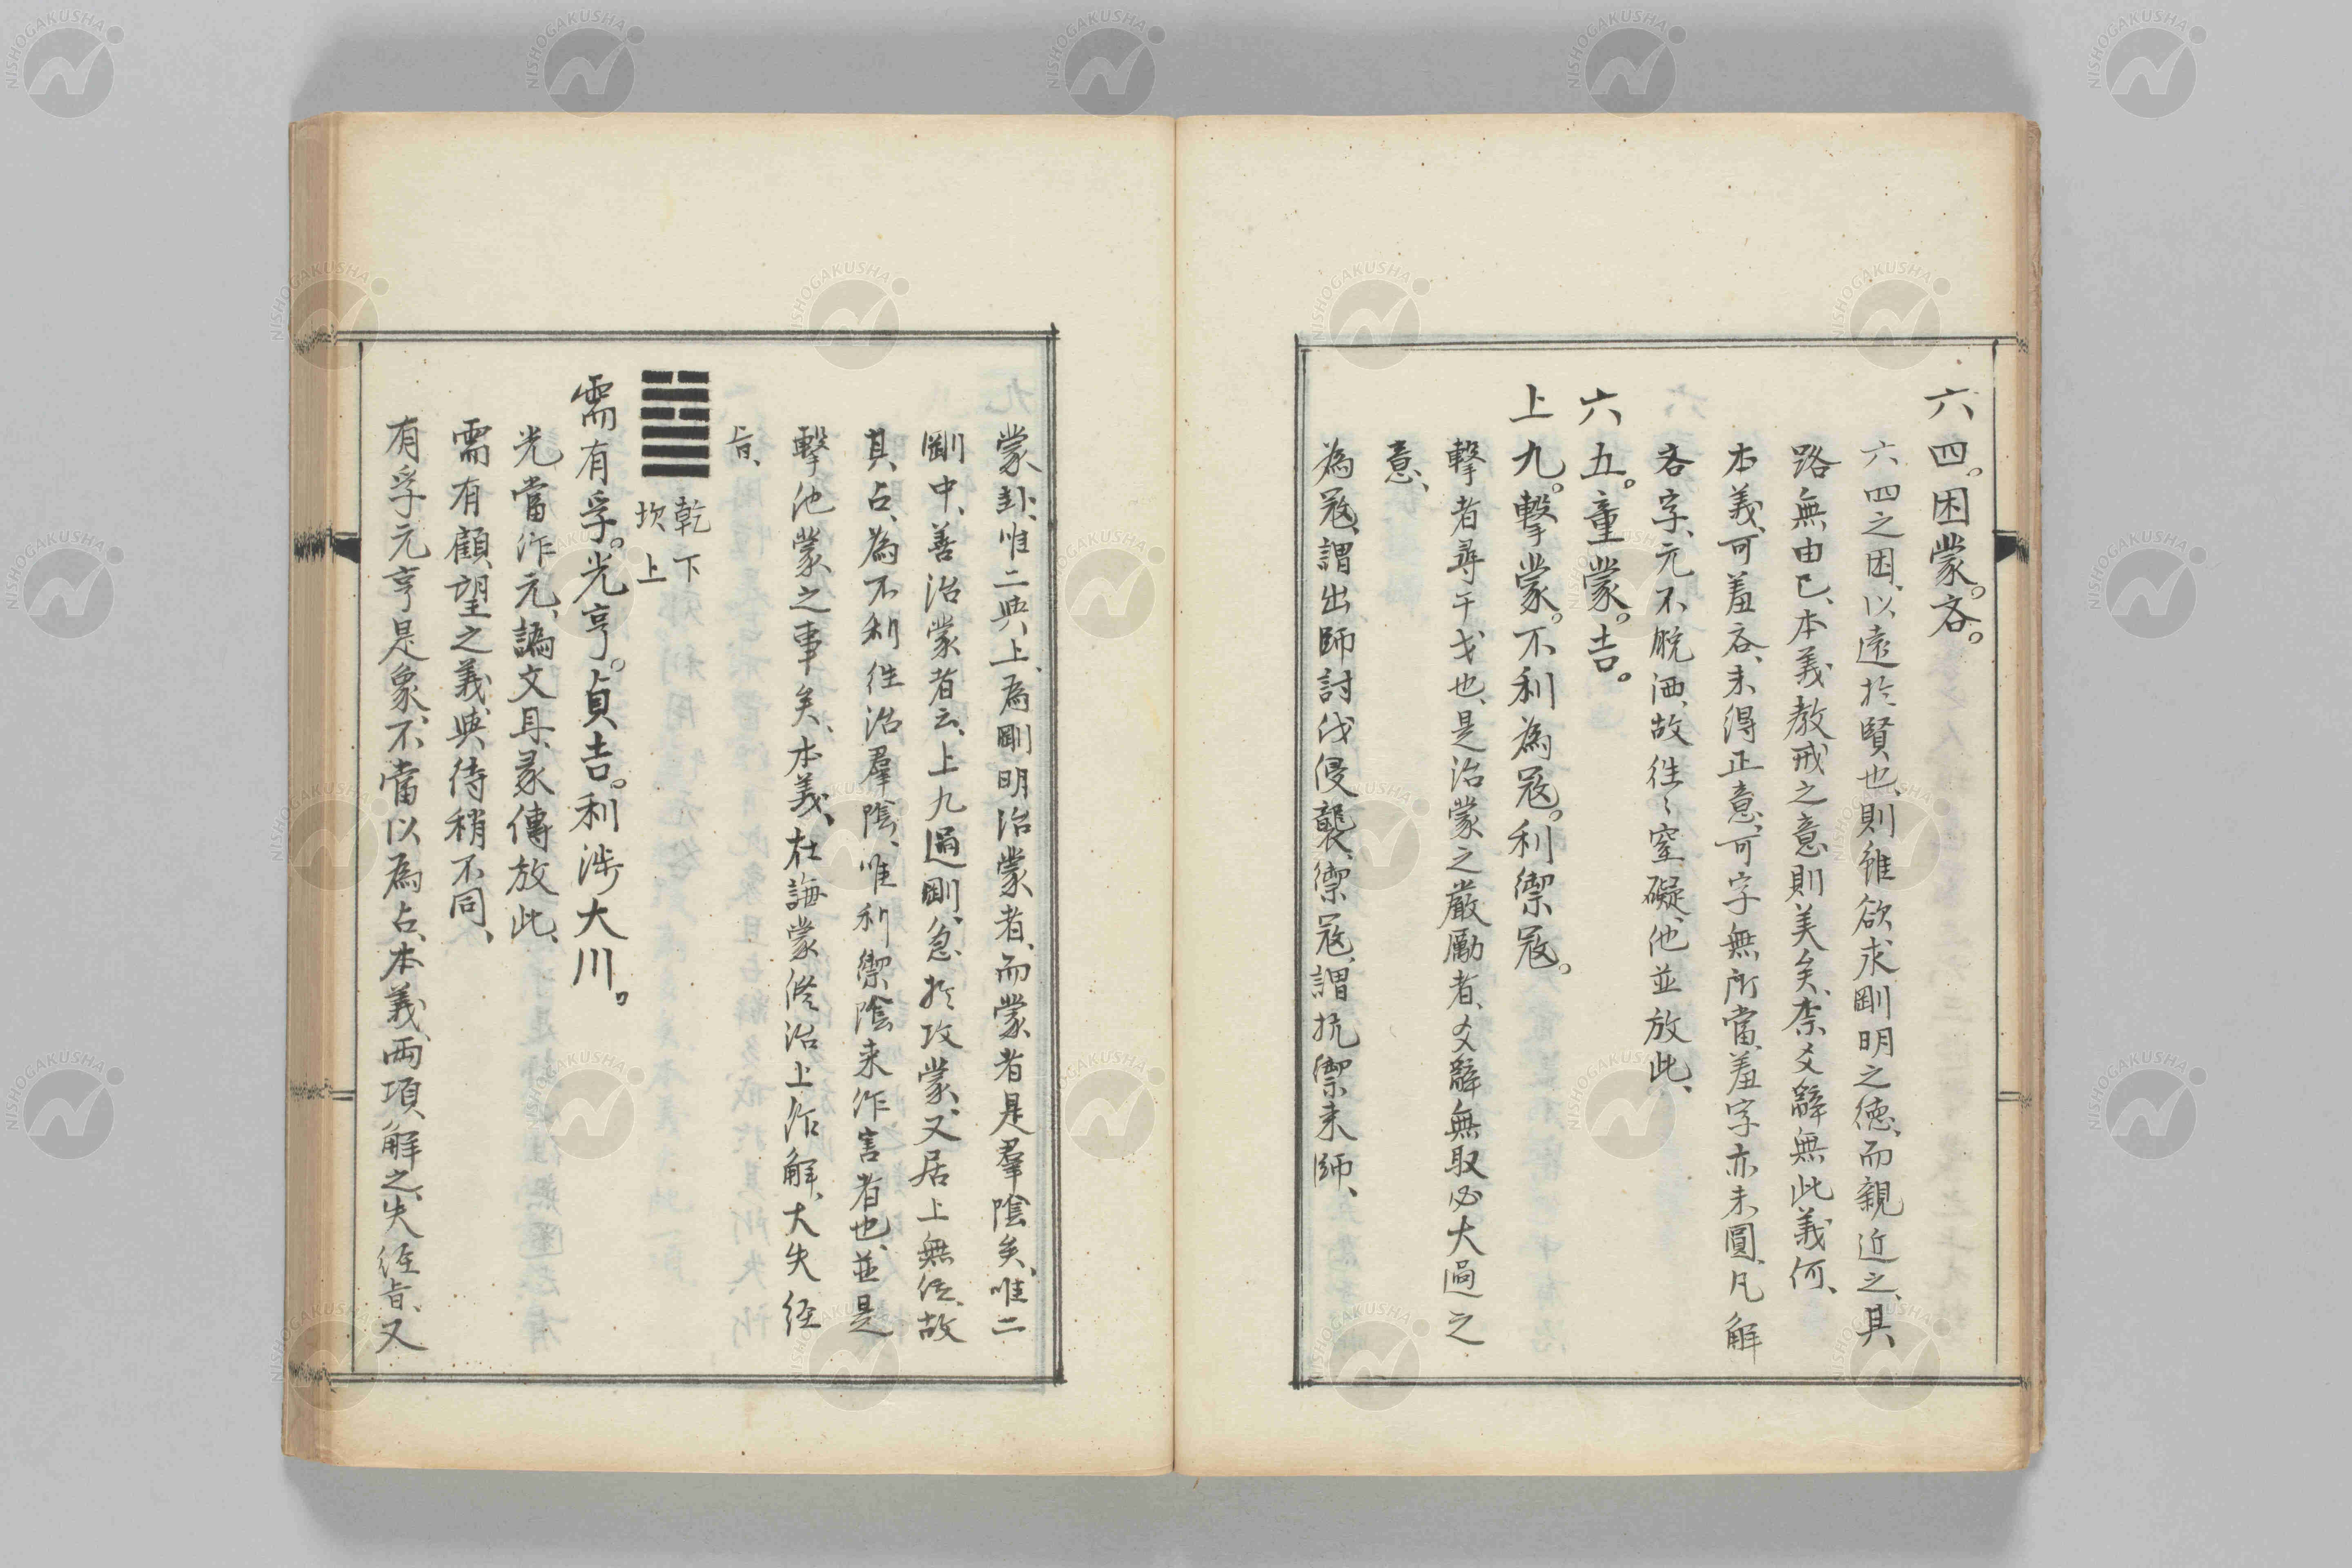 六四。困蒙。吝。
六四之困、以遠於賢也、則雖欲求剛明之徳、而親近之、其
路無由已、本義教戒之意則美矣、柰爻辭無此義何、
本義、可羞吝、未得正意、可字無所當、羞字亦未圓、凡解
吝字、元不脱洒、故往〻窒礙、他並放此、
六五。童蒙。吉。
上九。擊蒙。不利為冦。利禦冦。
擊者尋干戈也、是治蒙之嚴勵者、爻辭無取必大過之
意、
為冦、謂出師討伐侵襲、禦冦、謂抗禦来師、
蒙卦、唯二與上、為剛明治蒙者、而蒙者是羣陰矣、唯二
剛中、善治蒙者云、上九過剛、急於攻蒙、又居上無位、故
其占、為不利往治羣陰、唯利禦陰来作害者也、並是
擊他蒙之事矣、本義、在誨蒙優治上作解、大失經
旨、
乾下
坎上
需有孚。光亨。貞吉。利渉大川。
光當作元、譌文耳、彖傳放此、
需有顧望之義、與待稍不同、
有孚元亨是象、不當以為占、本義、兩項解之、失經旨、又
NISHOGAKUSHA